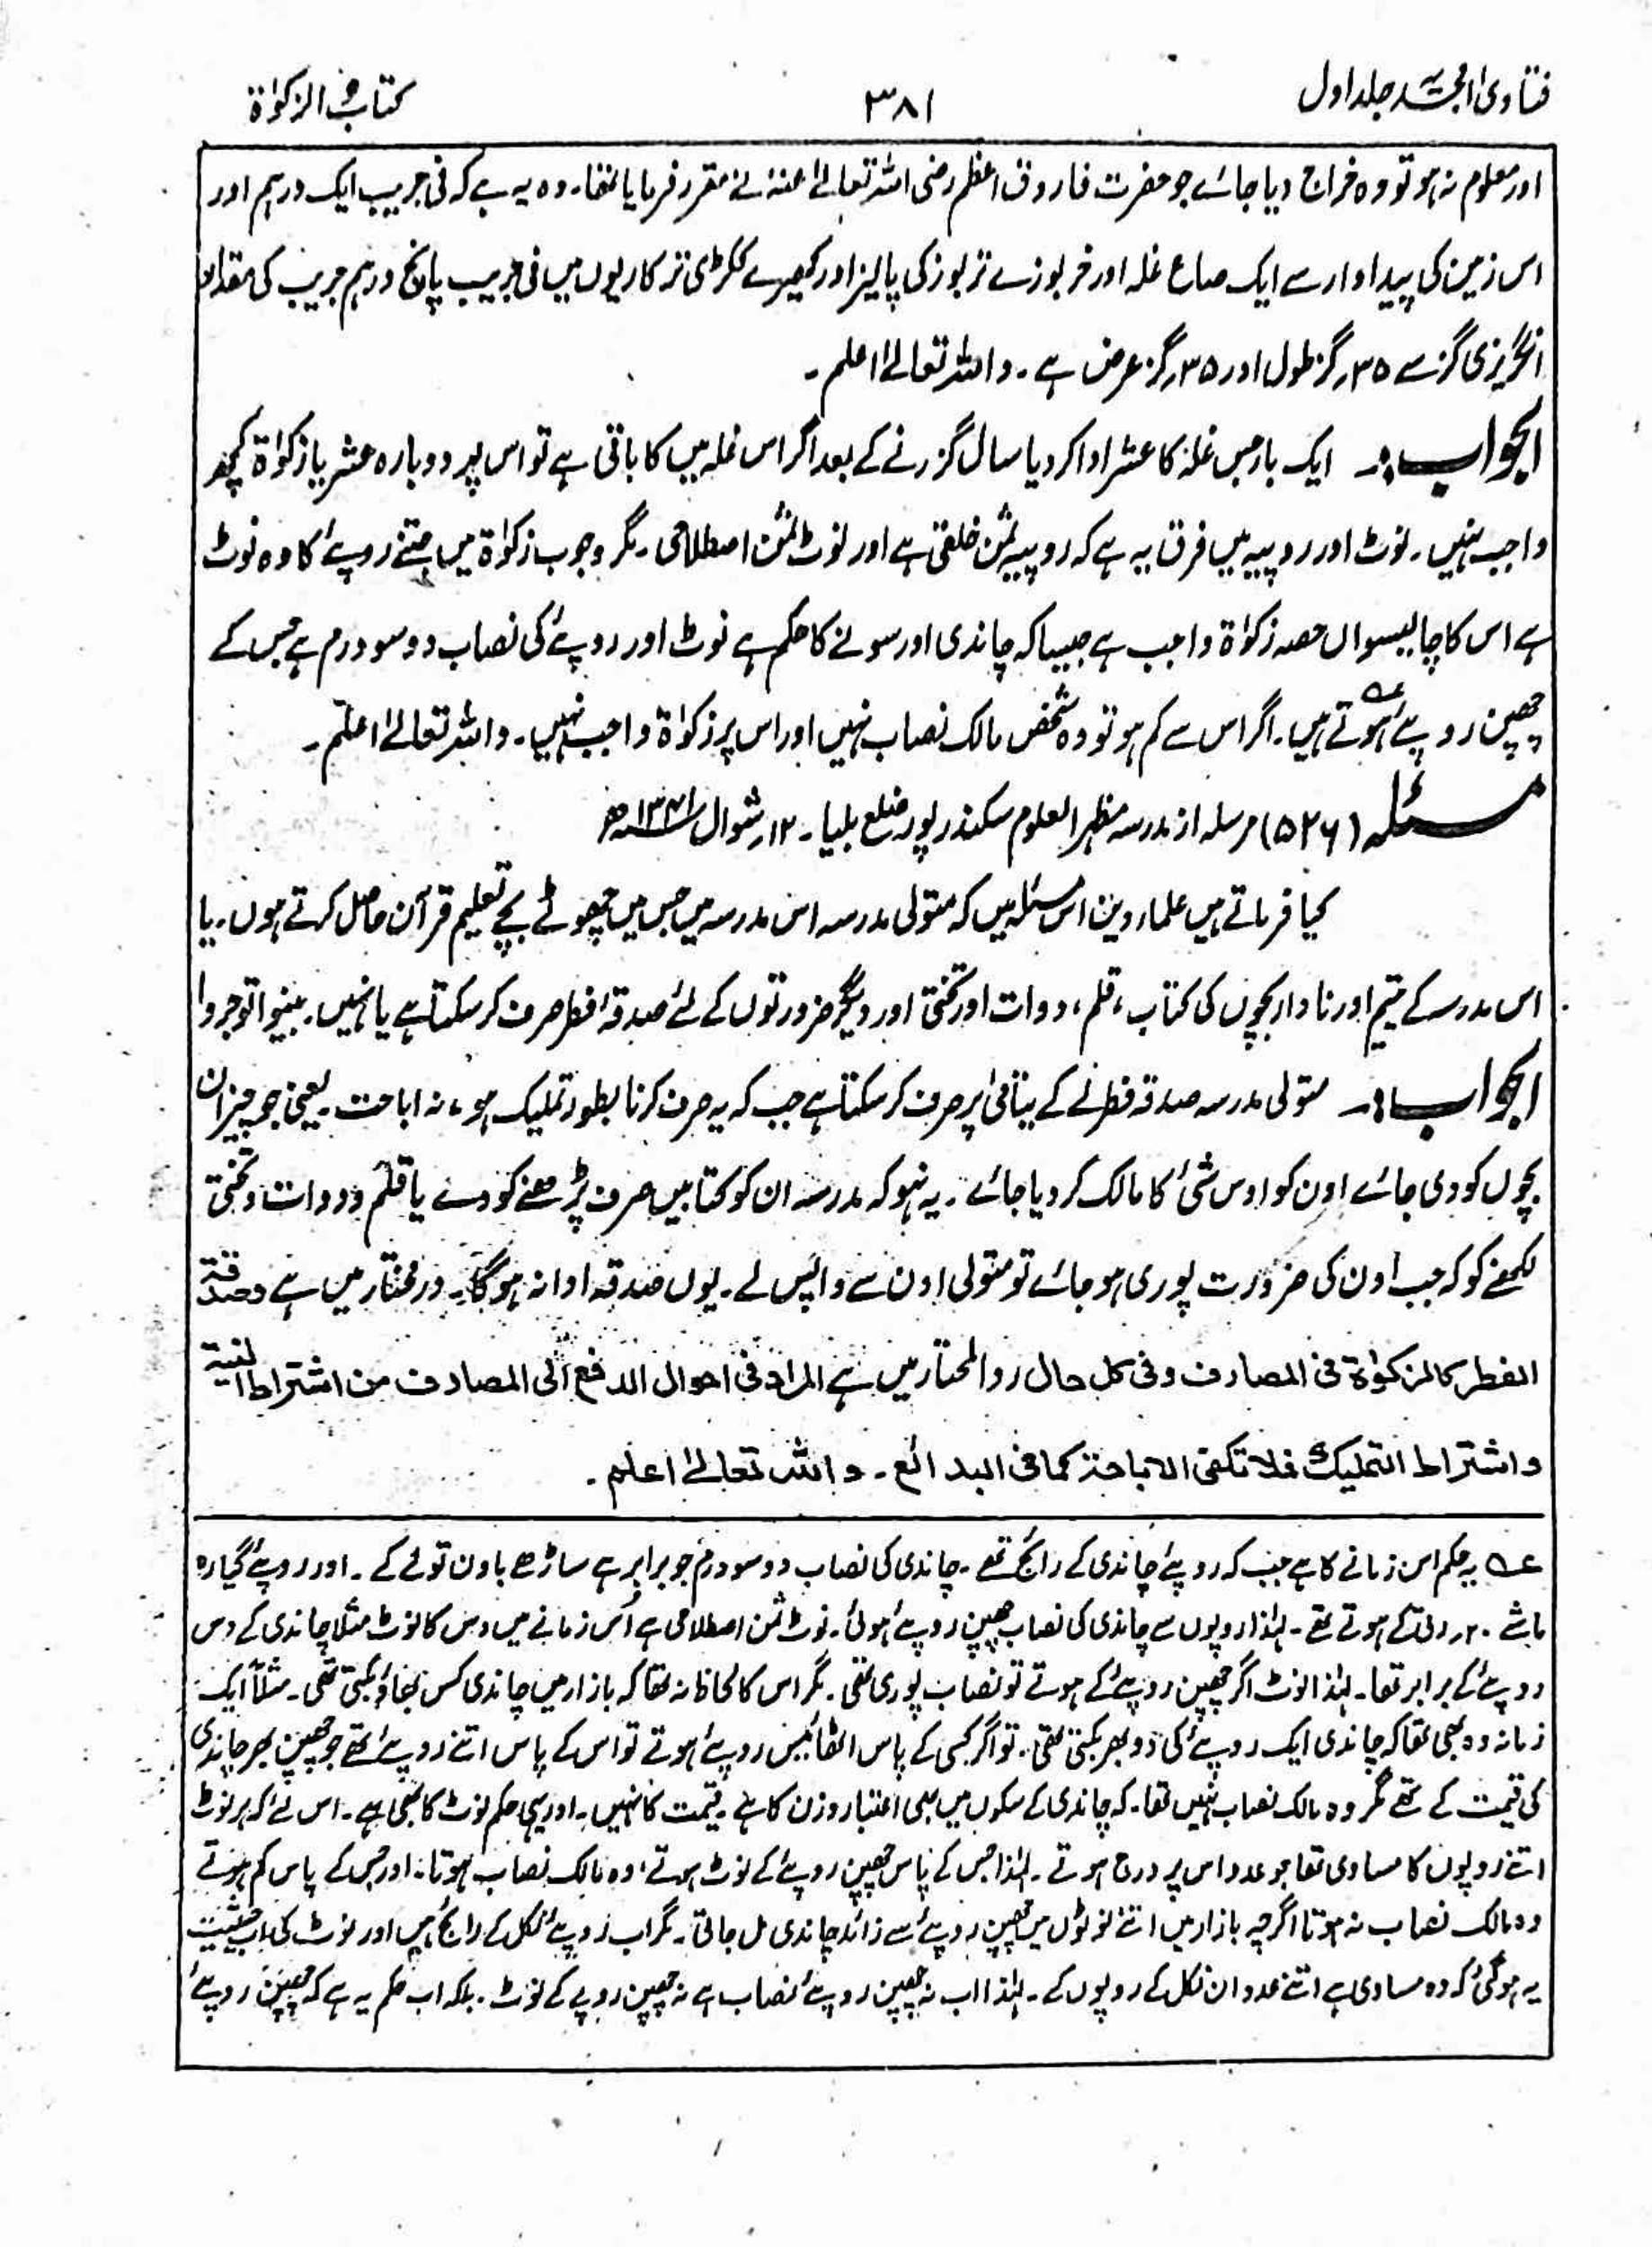 فتاویٰ امجدیہ جلد اول
۳۸۱
کتاب الزکوٰۃ
اور معلوم نہ ہو تو وہ خراج دیا جائے جو حضرت فاروق اعظم رضی اللہ تعالےٰ عنہ نے مقرر فرمایا تھا۔ وہ یہ ہے کہ فی جریب ایک درہم اور
اس زمین کی پیداوار سے ایک صاع غلہ اور خربوزے تربوز کی پالیز اور کھیرے ککڑی ترکاریوں میں فی جریب پانچ درہم جریب کی مقدار
انگریزی گز سے ۳۵؍ گز طول اور ۳۵؍ گز عرض ہے۔ واللہ تعالےٰ اعلم۔
الجواب:۔ ایک بار جس غلہ کا عشر ادا کر دیا سال گزرنے کے بعد اگر اس غلہ میں کا باقی ہے تو اس پر دوبارہ عشر یا زکوٰۃ کچھ
واجب نہیں۔ نوٹ اور روپیہ میں فرق یہ ہے کہ روپیہ ثمن خلقی ہے اور نوٹ ثمن اصطلاحی۔ مگر وجوب زکوٰۃ میں جتنے روپے کا وہ نوٹ
ہے اس کا چالیسواں حصہ زکوٰۃ واجب ہے جیسا کہ چاندی اور سونے کا حکم ہے نوٹ اور روپے کی نصاب دو سو درم ہے جس کے
چھپن روپے ہوتے ہیں۔ اگر اس سے کم ہو تو وہ شخص مالک نصاب نہیں اور اس پر زکوٰۃ واجب نہیں۔ واللہ تعالےٰ اعلم۔
مسئلہ (۵۲۶) مرسلہ از مدرسہ مظہر العلوم سکندر پور ضلع بلیا۔ ۱۲؍ شوال ۱۳۴۱ھ
کیا فرماتے ہیں علماء دین اس مسئلہ میں کہ متولی مدرسہ اس مدرسہ میں جس میں چھوٹے بچے تعلیم قرآن حاصل کرتے ہوں۔ یا
اس مدرسہ کے یتیم اور نادار بچوں کی کتاب، قلم، دوات اور تختی اور دیگر ضرورتوں کے لئے صدقۂ فطر صرف کر سکتا ہے یا نہیں۔ بینوا توجروا
الجواب:۔ متولی مدرسہ صدقہ فطر لے کے یتامیٰ پر صرف کر سکتا ہے جب کہ یہ صرف کرنا بطور تملیک ہو، نہ اباحت۔ یعنی جو چیز ان
بچوں کو دی جائے اون کو اوس شئ کا مالک کر دیا جائے۔ یہ نہو کہ مدرسہ ان کو کتابیں صرف پڑھنے کو دے یا قلم و دوات و تختی
لکھنے کو کہ جب اون کی ضرورت پوری ہو جائے تو متولی اون سے واپس لے۔ یوں صدقہ ادا نہ ہوگا۔ درمختار میں ہے وصدقۃ
الفطر کالزکوٰۃ فی المصارف وفی کل حال ردالمحتار میں ہے المراد فی احوال الدفع الی المصارف من اشتراط النیۃ
واشتراط التملیک فلا تکفی الاباحۃ کما فی البدائع۔ واللہ تعالےٰ اعلم۔
عہ یہ حکم اس زمانے کا ہے جب کہ روپے چاندی کے رائج تھے۔ چاندی کی نصاب دو سو درم جو برابر ہے ساڑھے باون تولے کے۔ اور روپے گیارہ
ماشے ۲۰؍ رتی کے ہوتے تھے۔ لہٰذا روپوں سے چاندی کی نصاب چھپن روپے ہوئی۔ نوٹ ثمن اصطلاحی ہے اُس زمانے میں دس کا نوٹ مثلاً چاندی کے دس
روپے کے برابر تھا۔ لہٰذا نوٹ اگر چھپن روپے کے ہوتے تو نصاب پوری تھی۔ مگر اس کا لحاظ نہ تھا کہ بازار میں چاندی کس بھاؤ بکتی تھی۔ مثلاً ایک
زمانہ وہ بھی تھا کہ چاندی ایک روپے کی دو بھر بکتی تھی۔ تو اگر کسی کے پاس اٹھائیس روپے ہوتے تو اس کے پاس اتنے روپے تھے جو چھپن بھر چاندی
کی قیمت کے تھے مگر وہ مالک نصاب نہیں تھا۔ کہ چاندی کے سکوں میں بھی اعتبار وزن کا ہے۔ قیمت کا نہیں۔ اور یہی حکم نوٹ کا بھی ہے۔ اس لئے کہ ہر نوٹ
اتنے روپوں کا مساوی تھا جو عدد اس پر درج ہوتے۔ لہٰذا جس کے پاس چھپن روپے کے نوٹ ہوتے، وہ مالک نصاب ہوتا۔ اور جس کے پاس کم ہوتے
وہ مالک نصاب نہ ہوتا اگرچہ بازار میں اتنے نوٹوں میں چھپن روپے سے زائد چاندی مل جاتی۔ مگر اب روپے نکل کے رائج ہیں اور نوٹ کی اب حیثیت
یہ ہوگئی کہ وہ مساوی ہے اتنے عدد ان نکل کے روپوں کے۔ لہٰذا اب نہ چھپن روپے نصاب ہے نہ چھپن روپے کے نوٹ۔ بلکہ اب حکم یہ ہے کہ چھپن روپے